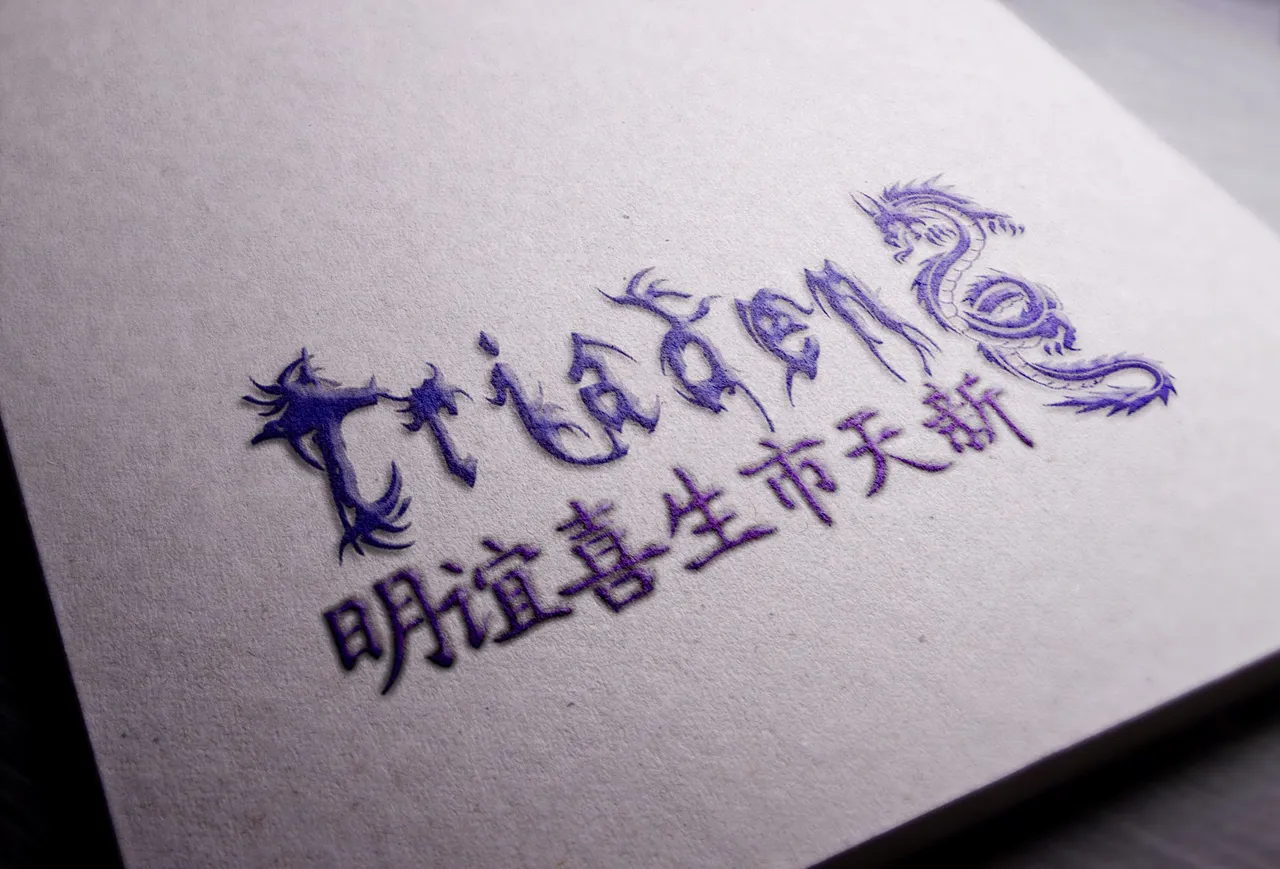 Triaden
明谊喜生市天新